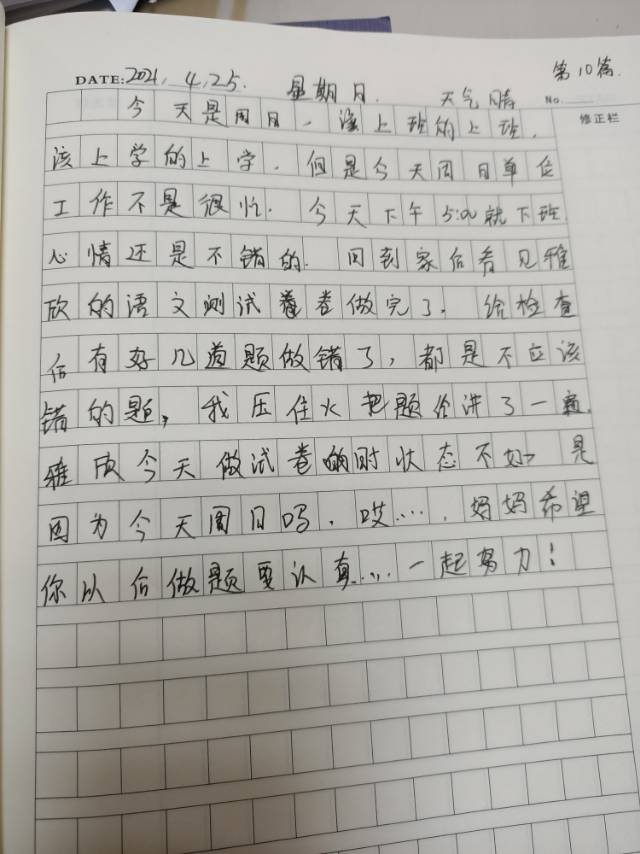 第10篇
DATE: 2021.4.25. 星期日. 天气晴 No.
修正栏
今天是周日,该上班的上班,
该上学的上学.但是今天周日单位
工作不是很忙.今天下午5:00就下班
心情还是不错的.回到家后看见雅
欣的语文测试卷卷做完了.给检查
后有好几道题做错了,都是不应该
错的题,我压住火把题给讲了一遍.
雅欣今天做试卷的时状态不好是
因为今天周日吗.哎….妈妈希望
你以后做题要认真….一起努力!